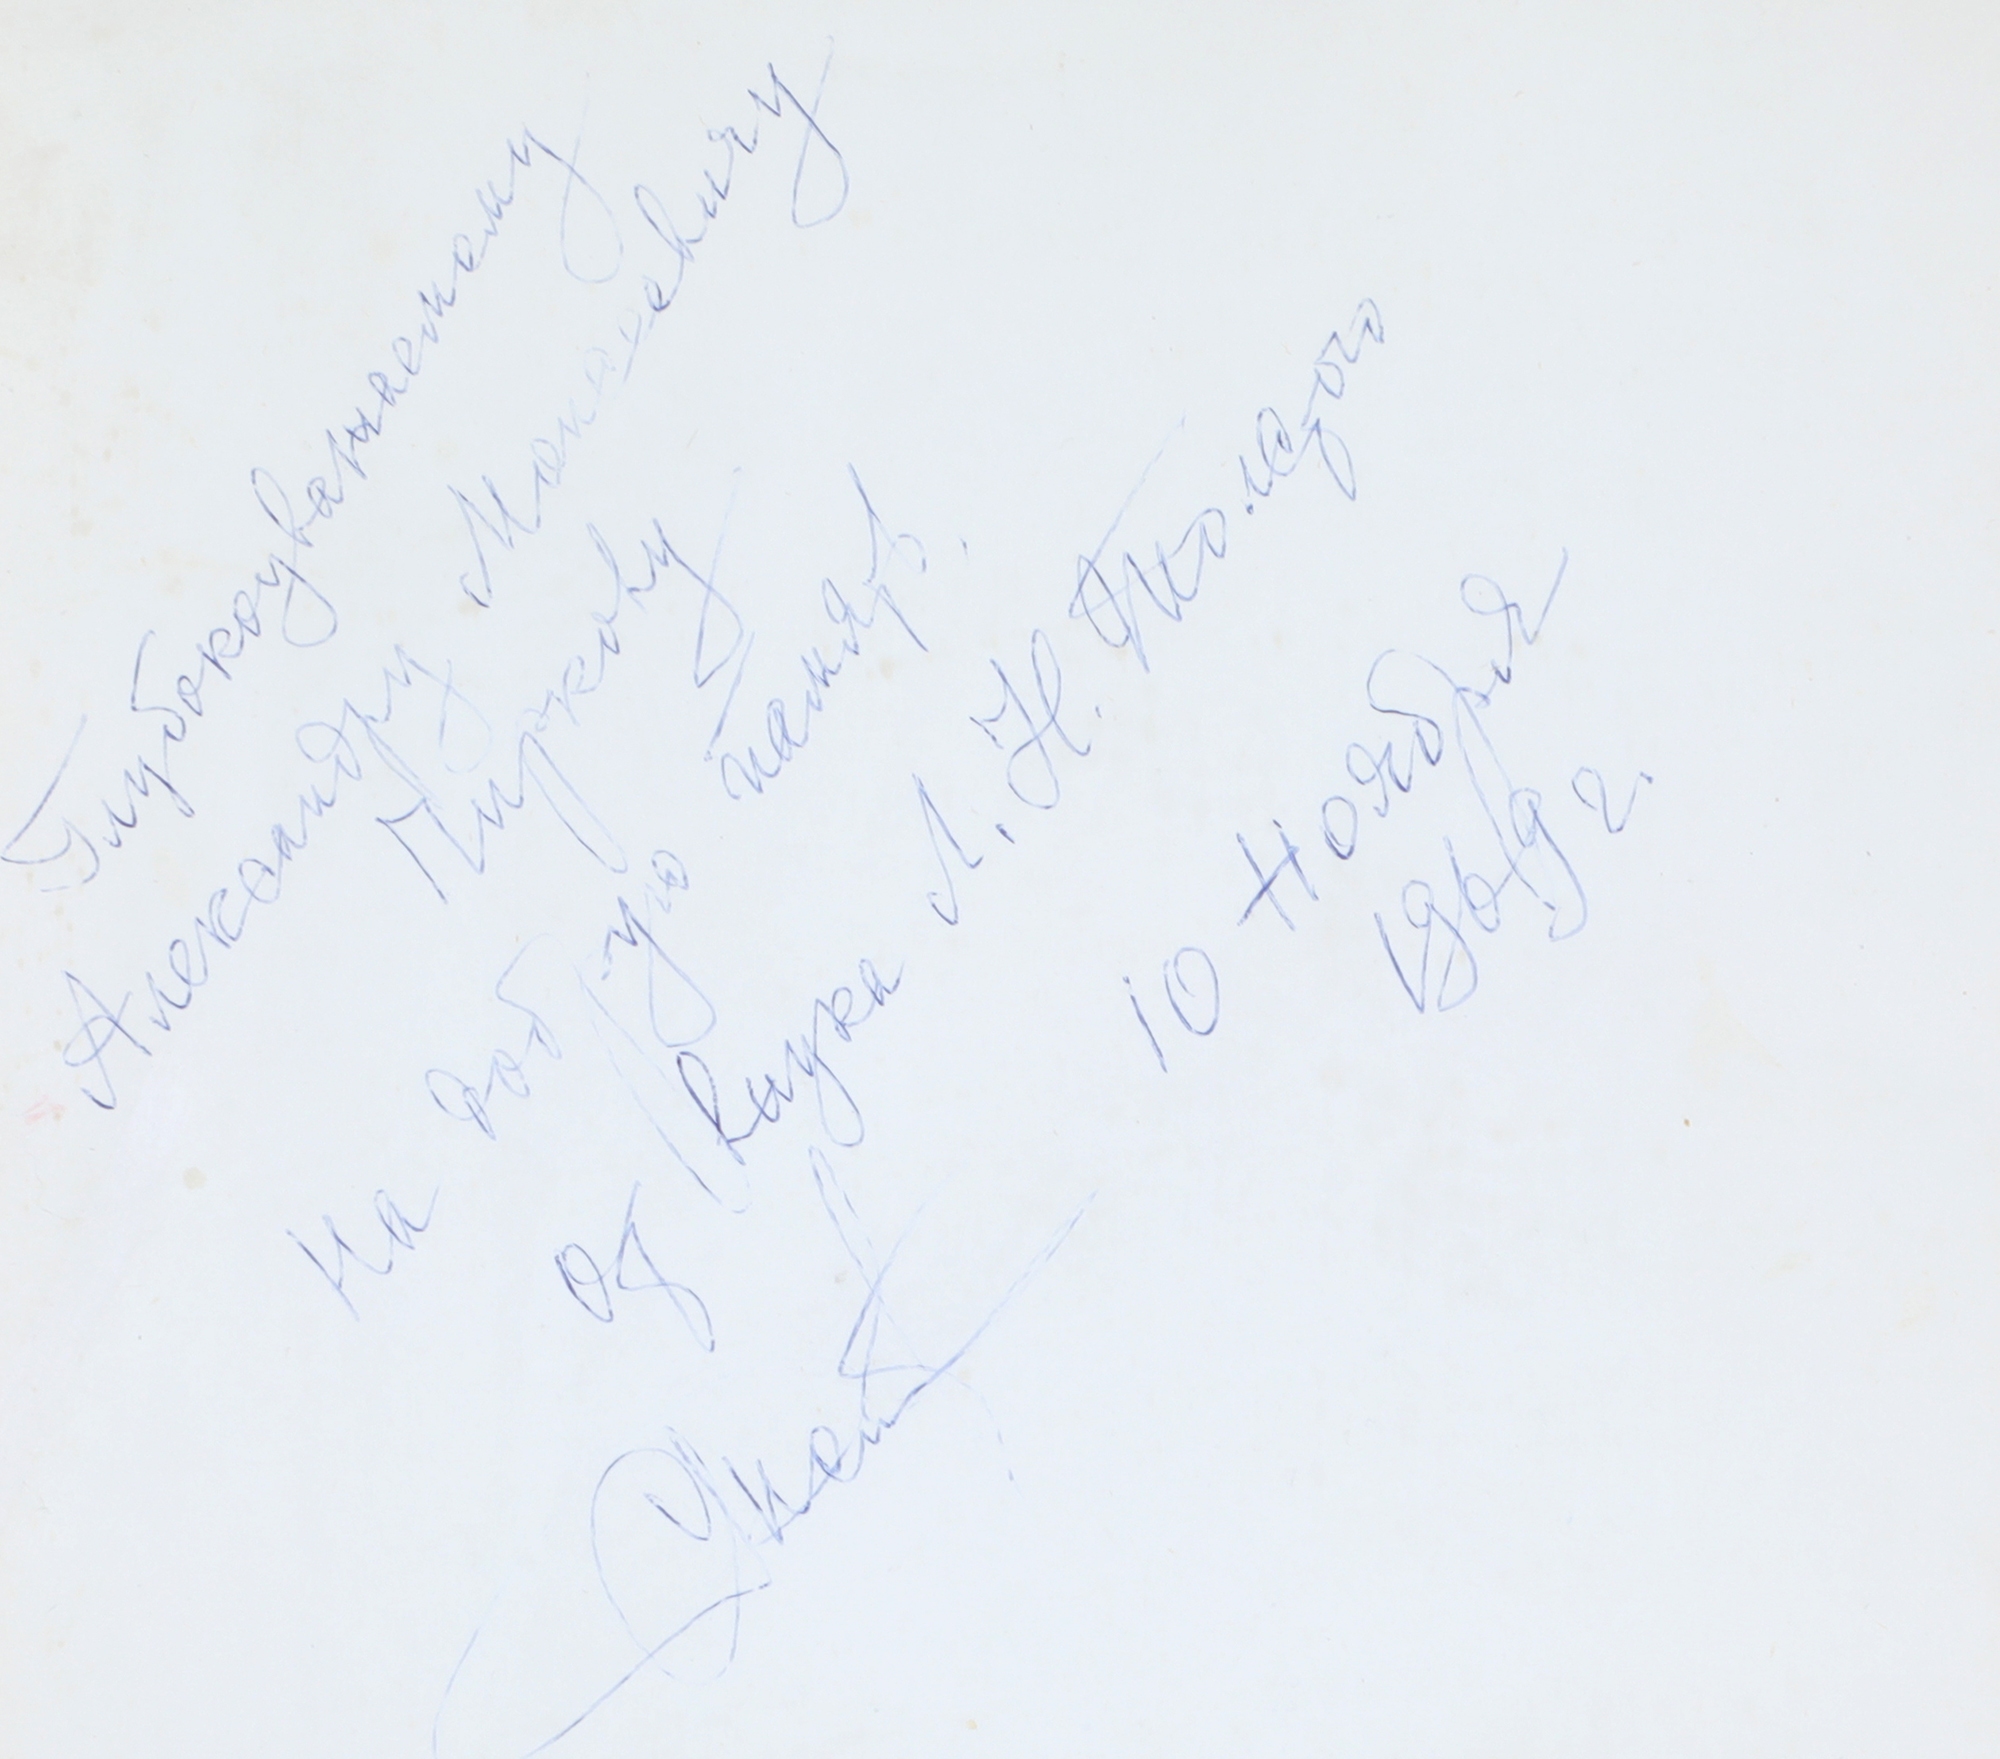 Глубокоуважаемому
Александру Моисеевичу
на добрую память.
от внука Л. Н. Толстого
10 ноября
1969 г.